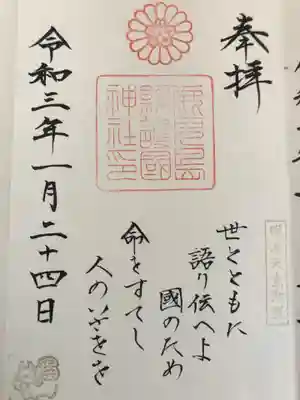 奉拝
鹿兒島
縣護國
神社印
明治天皇御製
世とともに
語り伝へよ
國のため
命をすてし
人のいさをを
令和三年一月二十四日